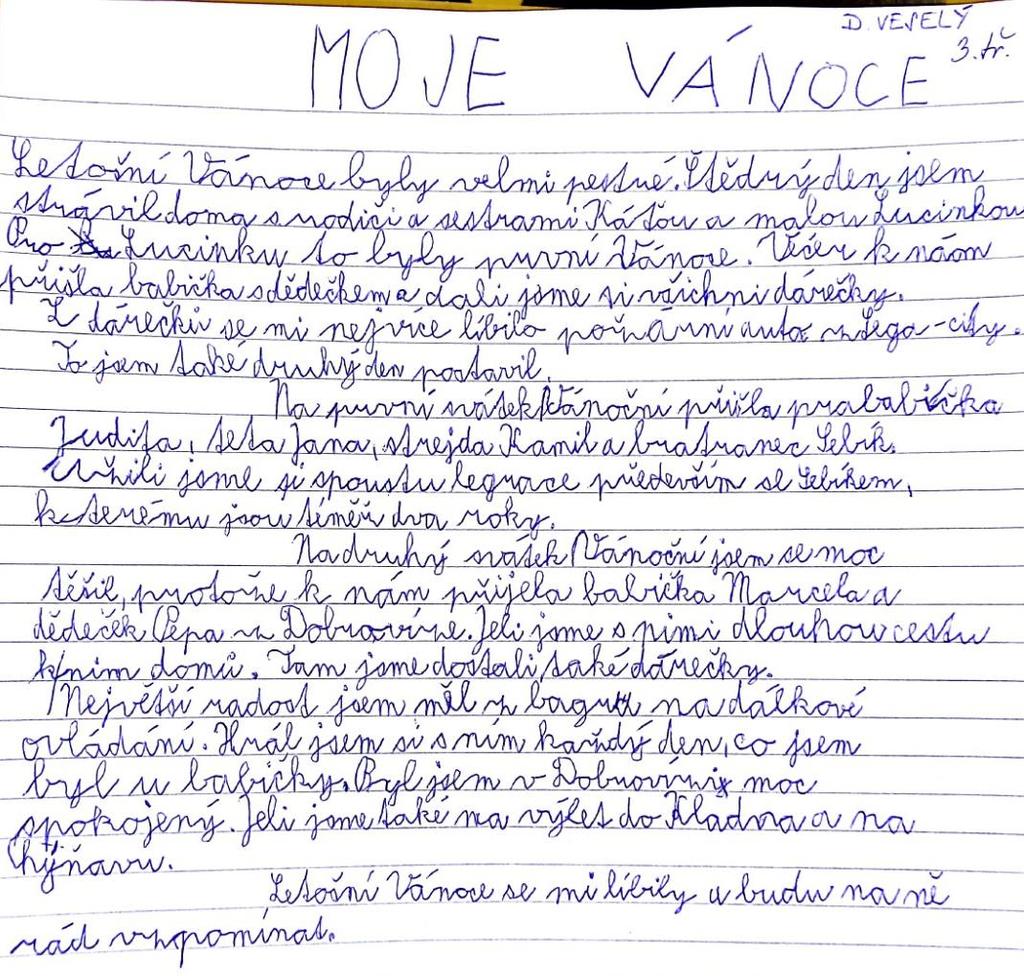 D. VESELÝ
3. tř.
MOJE VÁNOCE
Letošní Vánoce byly velmi pestré. Štědrý den jsem
strávil doma s rodiči a sestrami Káťou a malou Lucinkou
Pro Lucinku to byly první Vánoce. Večer k nám
přišla babička s dědečkem a dali jsme si všichni dárečky.
Z dárečků se mi nejvíce líbilo požární auto z Lega-city.
To jsem také druhý den postavil.
Na první svátek Vánoční přišla prababička
Judita, teta Jana, strejda Kamil a bratranec Sebík.
Užili jsme si spoustu legrace především se Sebíkem,
kterému jsou téměř dva roky.
Na druhý svátek Vánoční jsem se moc
těšil, protože k nám přijela babička Marcela a
dědeček Pepa z Dobrovíze. Jeli jsme s nimi dlouhou cestu
k nim domů. Tam jsme dostali také dárečky.
Největší radost jsem měl z bagru na dálkové
ovládání. Hrál jsem si s ním každý den, co jsem
byl u babičky. Byl jsem v Dobrovízi moc
spokojený. Jeli jsme také na výlet do Kladna a na
Chyňavu.
Letošní Vánoce se mi líbily a budu na ně
rád vzpomínat.